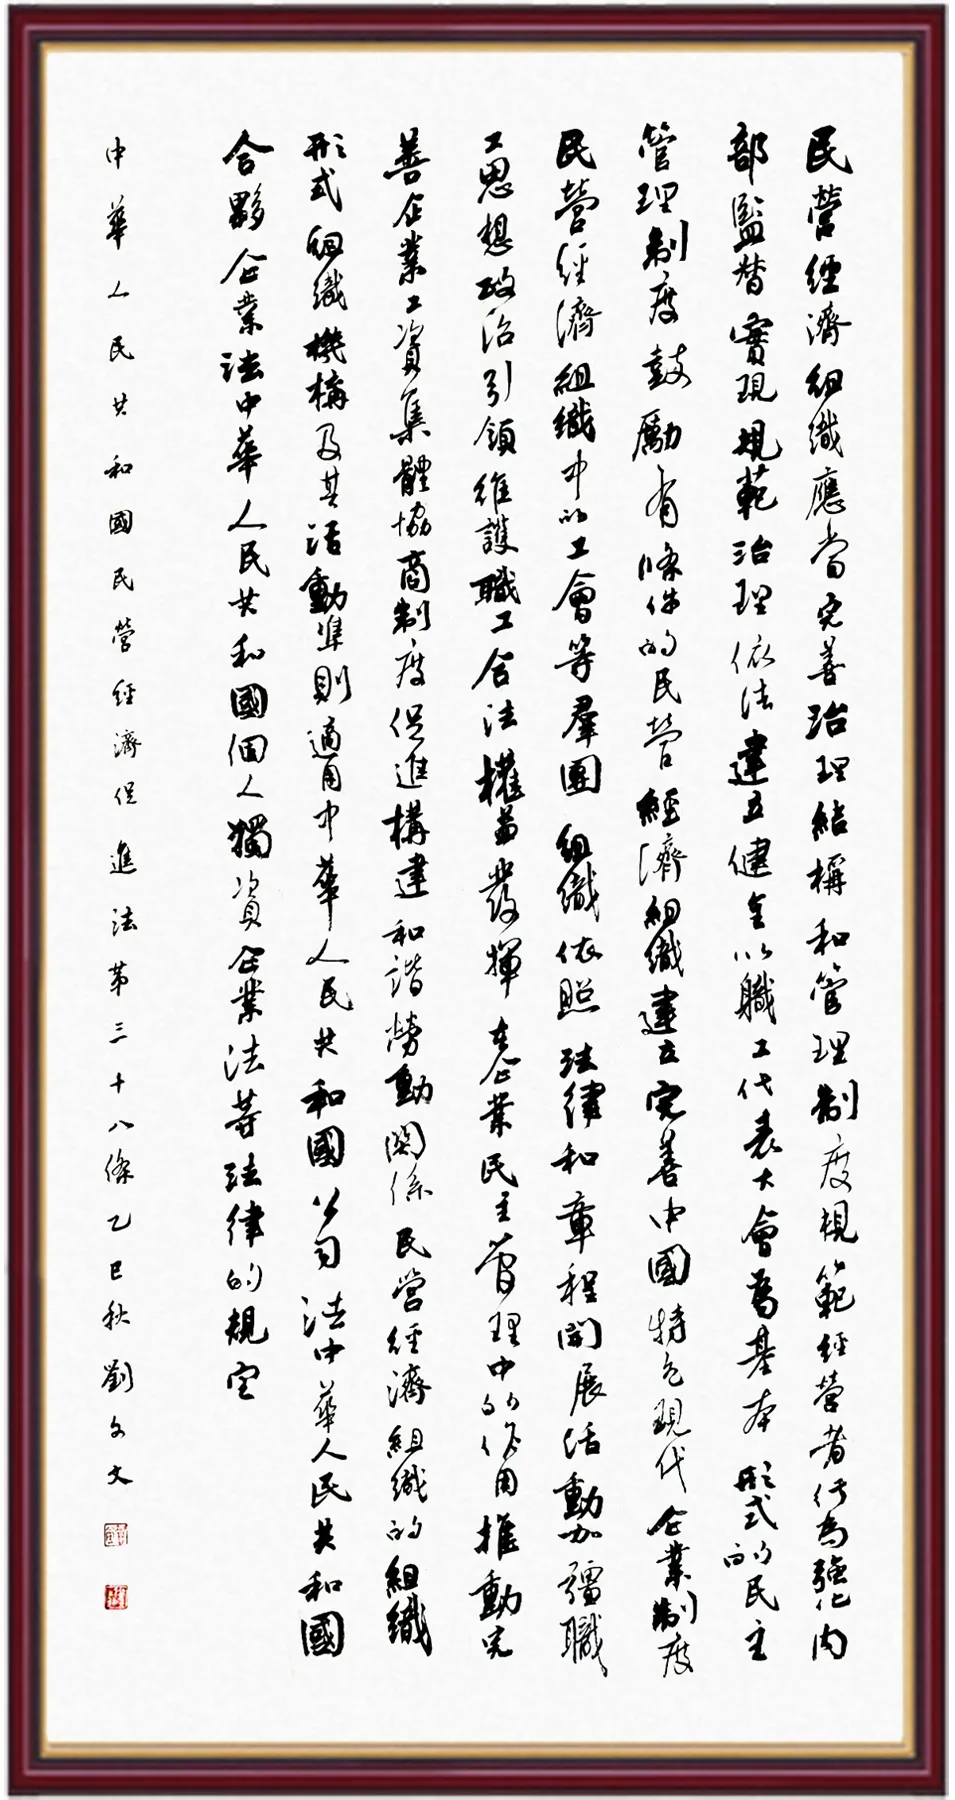 民營經濟組織應當完善治理結構和管理制度規範經營者行為強化內
部監督實現規範治理依法建立健全以職工代表大會為基本形式的民主
管理制度鼓勵有條件的民營經濟組織建立完善中國特色現代企業制度
民營經濟組織中的工會等羣團組織依照法律和章程開展活動加彊職
工思想政治引領維護職工合法權益發揮在企業民主管理中的作用推動完
善企業工資集體協商制度促進構建和諧勞動關係民營經濟組織的組織
形式組織機構及其活動準則適用中華人民共和國公司法中華人民共和國
合夥企業法中華人民共和國個人獨資企業法等法律的規定
中華人民共和國民營經濟促進法第三十八條乙巳秋劉文文